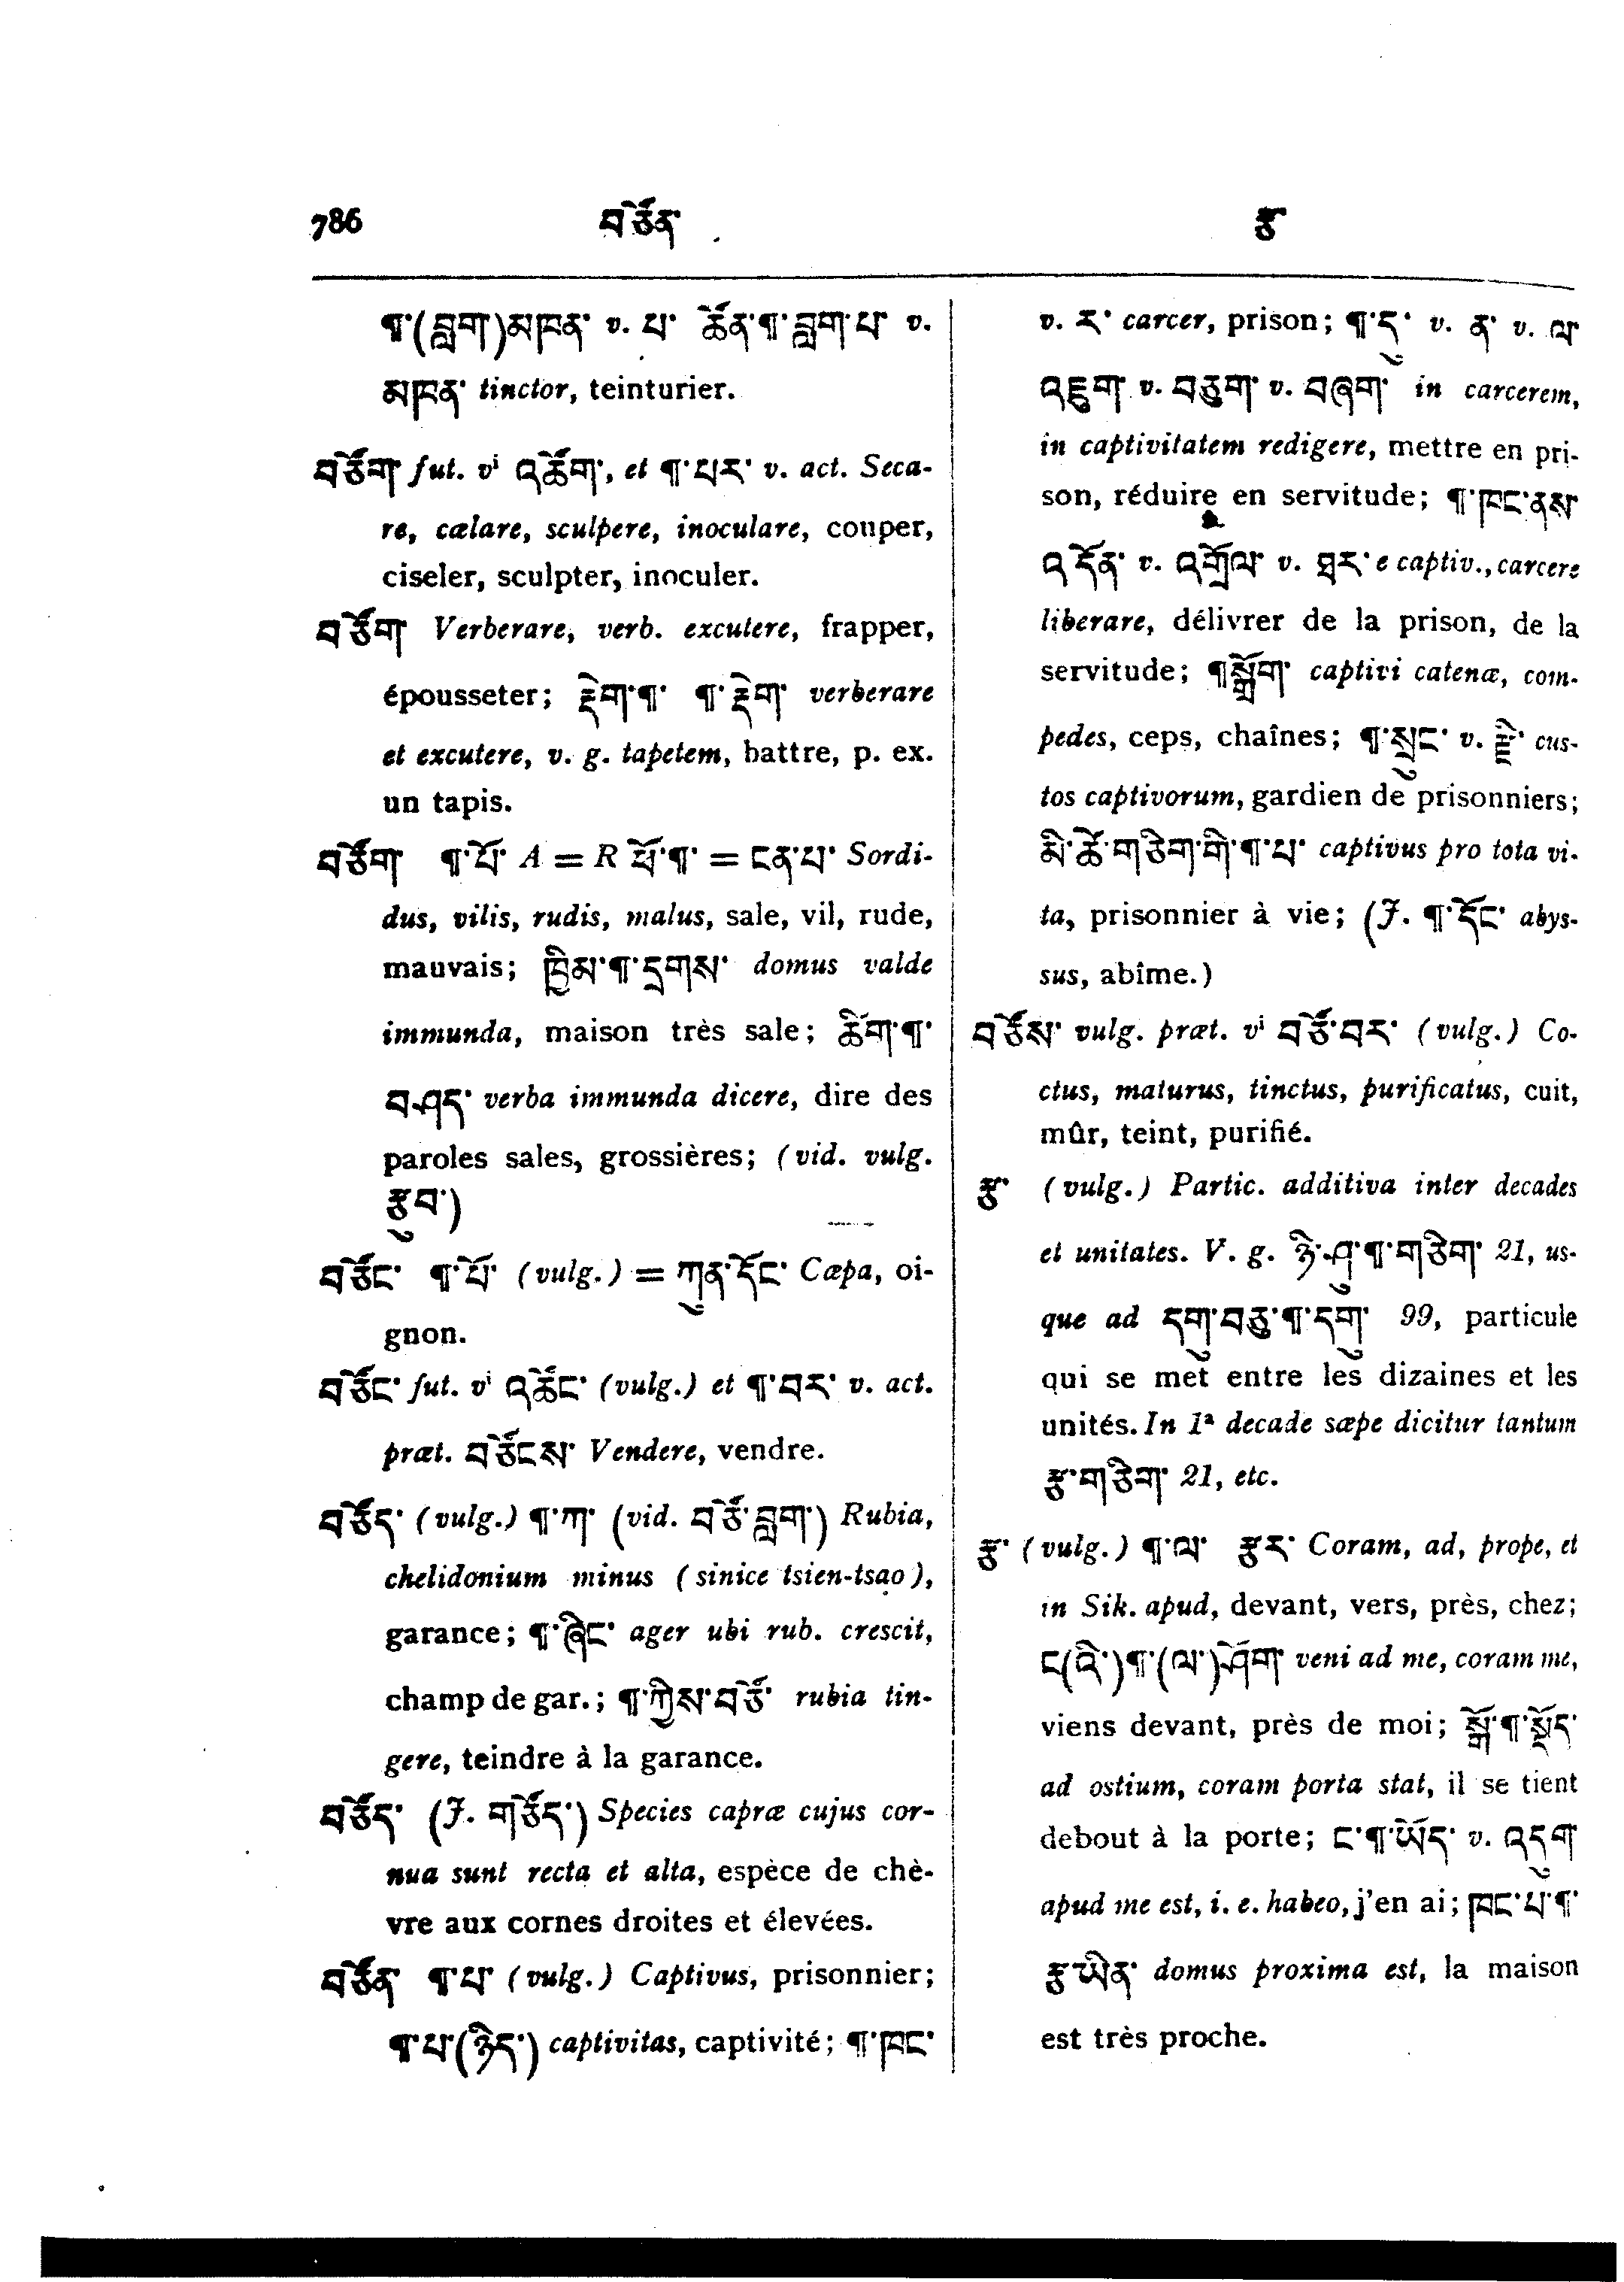 786 བཙོན་ རྩ
¶་(བླག)མཁན་ v. པ་ ཚོན་¶་བླག་པ་ v.
མཁན་ tinctor, teinturier.
བཙོག་ fut. vⁱ འཚོག་, et ¶་པར་ v. act. Seca-
re, cælare, sculpere, inoculare, couper,
ciseler, sculpter, inoculer.
བཙོག Verberare, verb. excutere, frapper,
épousseter; རྡེག་¶་ ¶་རྡེག་ verberare
et excutere, v. g. tapetem, battre, p. ex.
un tapis.
བཙོག ¶་པོ་ A = R ཕོ་¶་ = ངན་པ་ Sordi-
dus, vilis, rudis, malus, sale, vil, rude,
mauvais; ཁྱིམ་¶་དྲགས་ domus valde
immunda, maison très sale; ཚིག་¶་
བཤད་ verba immunda dicere, dire des
paroles sales, grossières; (vid. vulg.
རྩུབ་)
བཙོང་ ¶་པོ་ (vulg.) = ཀུན་དོང་ Cæpa, oi-
gnon.
བཙོང་ fut. vⁱ འཚོང་ (vulg.) et ¶་བར་ v. act.
præt. བཙོངས་ Vendere, vendre.
བཙོད་ (vulg.) ¶་ཀ་ (vid. བཙོ་བླག་) Rubia,
chelidonium minus (sinice tsien-tsao),
garance; ¶་ཞིང་ ager ubi rub. crescit,
champ de gar.; ¶་ཀྱིས་བཙོ་ rubia tin-
gere, teindre à la garance.
བཙོད་ (J. གཙོད་) Species capræ cujus cor-
nua sunt recta et alta, espèce de chè-
vre aux cornes droites et élevées.
བཙོན ¶་པ་ (vulg.) Captivus, prisonnier;
¶་པ་(ཉིད་) captivitas, captivité; ¶་ཁང་
v. ར་ carcer, prison; ¶་དུ་ v. ན་ v. ལ་
འཇུག་ v. བཅུག་ v. བཞག་ in carcerem,
in captivitatem redigere, mettre en pri-
son, réduire en servitude; ¶་ཁང་ནས་
འདོན་ v. འགྲོལ་ v. ཐར་ e captiv., carcere
liberare, délivrer de la prison, de la
servitude; ¶སྒྲོག་ captivi catenæ, com-
pedes, ceps, chaînes; ¶་སྲུང་ v. རྗེ་ cus-
tos captivorum, gardien de prisonniers;
མི་ཚེ་གཅིག་གི་¶་པ་ captivus pro tota vi-
ta, prisonnier à vie; (J. ¶་དོང་ abys-
sus, abîme.)
བཙོས་ vulg. præt. vⁱ བཙོ་བར་ (vulg.) Co-
ctus, maturus, tinctus, purificatus, cuit,
mûr, teint, purifié.
རྩ་ (vulg.) Partic. additiva inter decades
et unitates. V. g. ཉི་ཤུ་¶་གཅིག་ 21, us-
que ad དགུ་བཅུ་¶་དགུ་ 99, particule
qui se met entre les dizaines et les
unités. In 1ª decade sæpe dicitur tantum
རྩ་གཅིག་ 21, etc.
རྩ་ (vulg.) ¶་ལ་ རྩར་ Coram, ad, prope, et
in Sik. apud, devant, vers, près, chez;
ང(འི་)¶་(ལ་)ཤོག་ veni ad me, coram me,
viens devant, près de moi; སྒོ་¶་སྡོད་
ad ostium, coram porta stat, il se tient
debout à la porte; ང་¶་ཡོད་ v. འདུག་
apud me est, i. e. habeo, j'en ai; ཁང་པ་¶་
རྩ་ཡིན་ domus proxima est, la maison
est très proche.